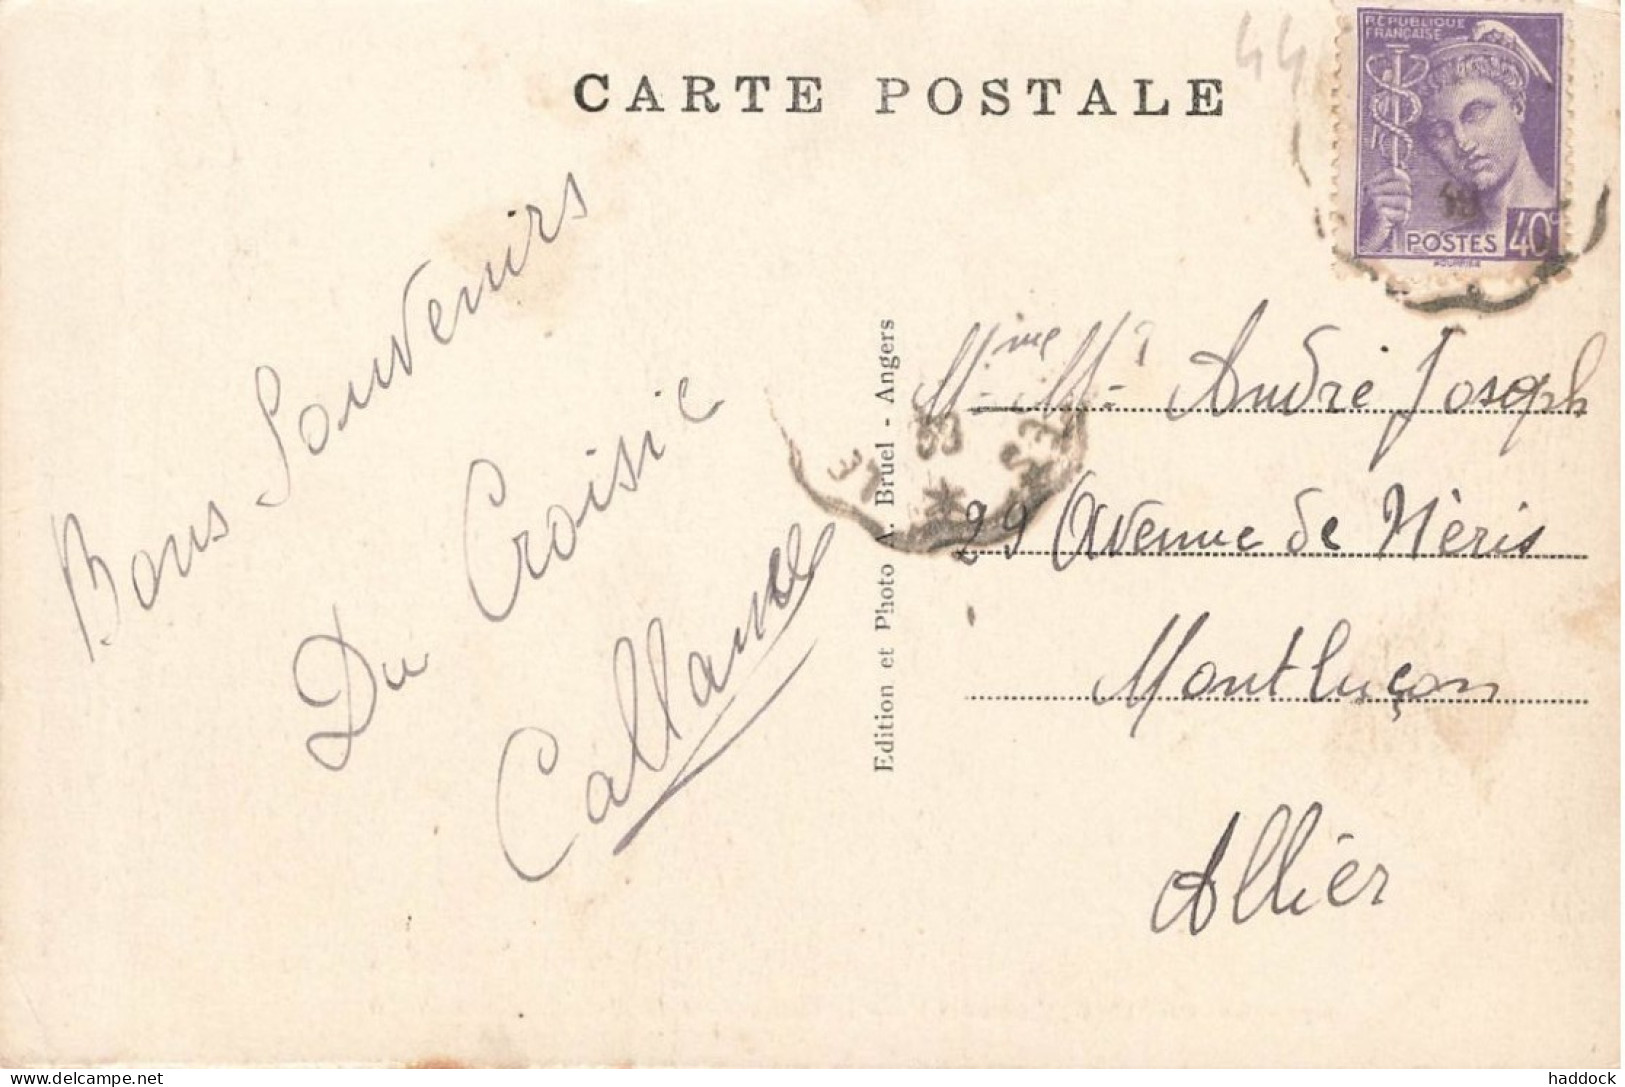 CARTE POSTALE
44
RÉPUBLIQUE
FRANÇAISE
POSTES 40c
Bons Souvenirs
Du Croisic
Edition et Photo A. Bruel - Angers
Mme Mr André Joseph
29 Avenue de Néris
Montluçon
Allier
delcampe.net
haddock